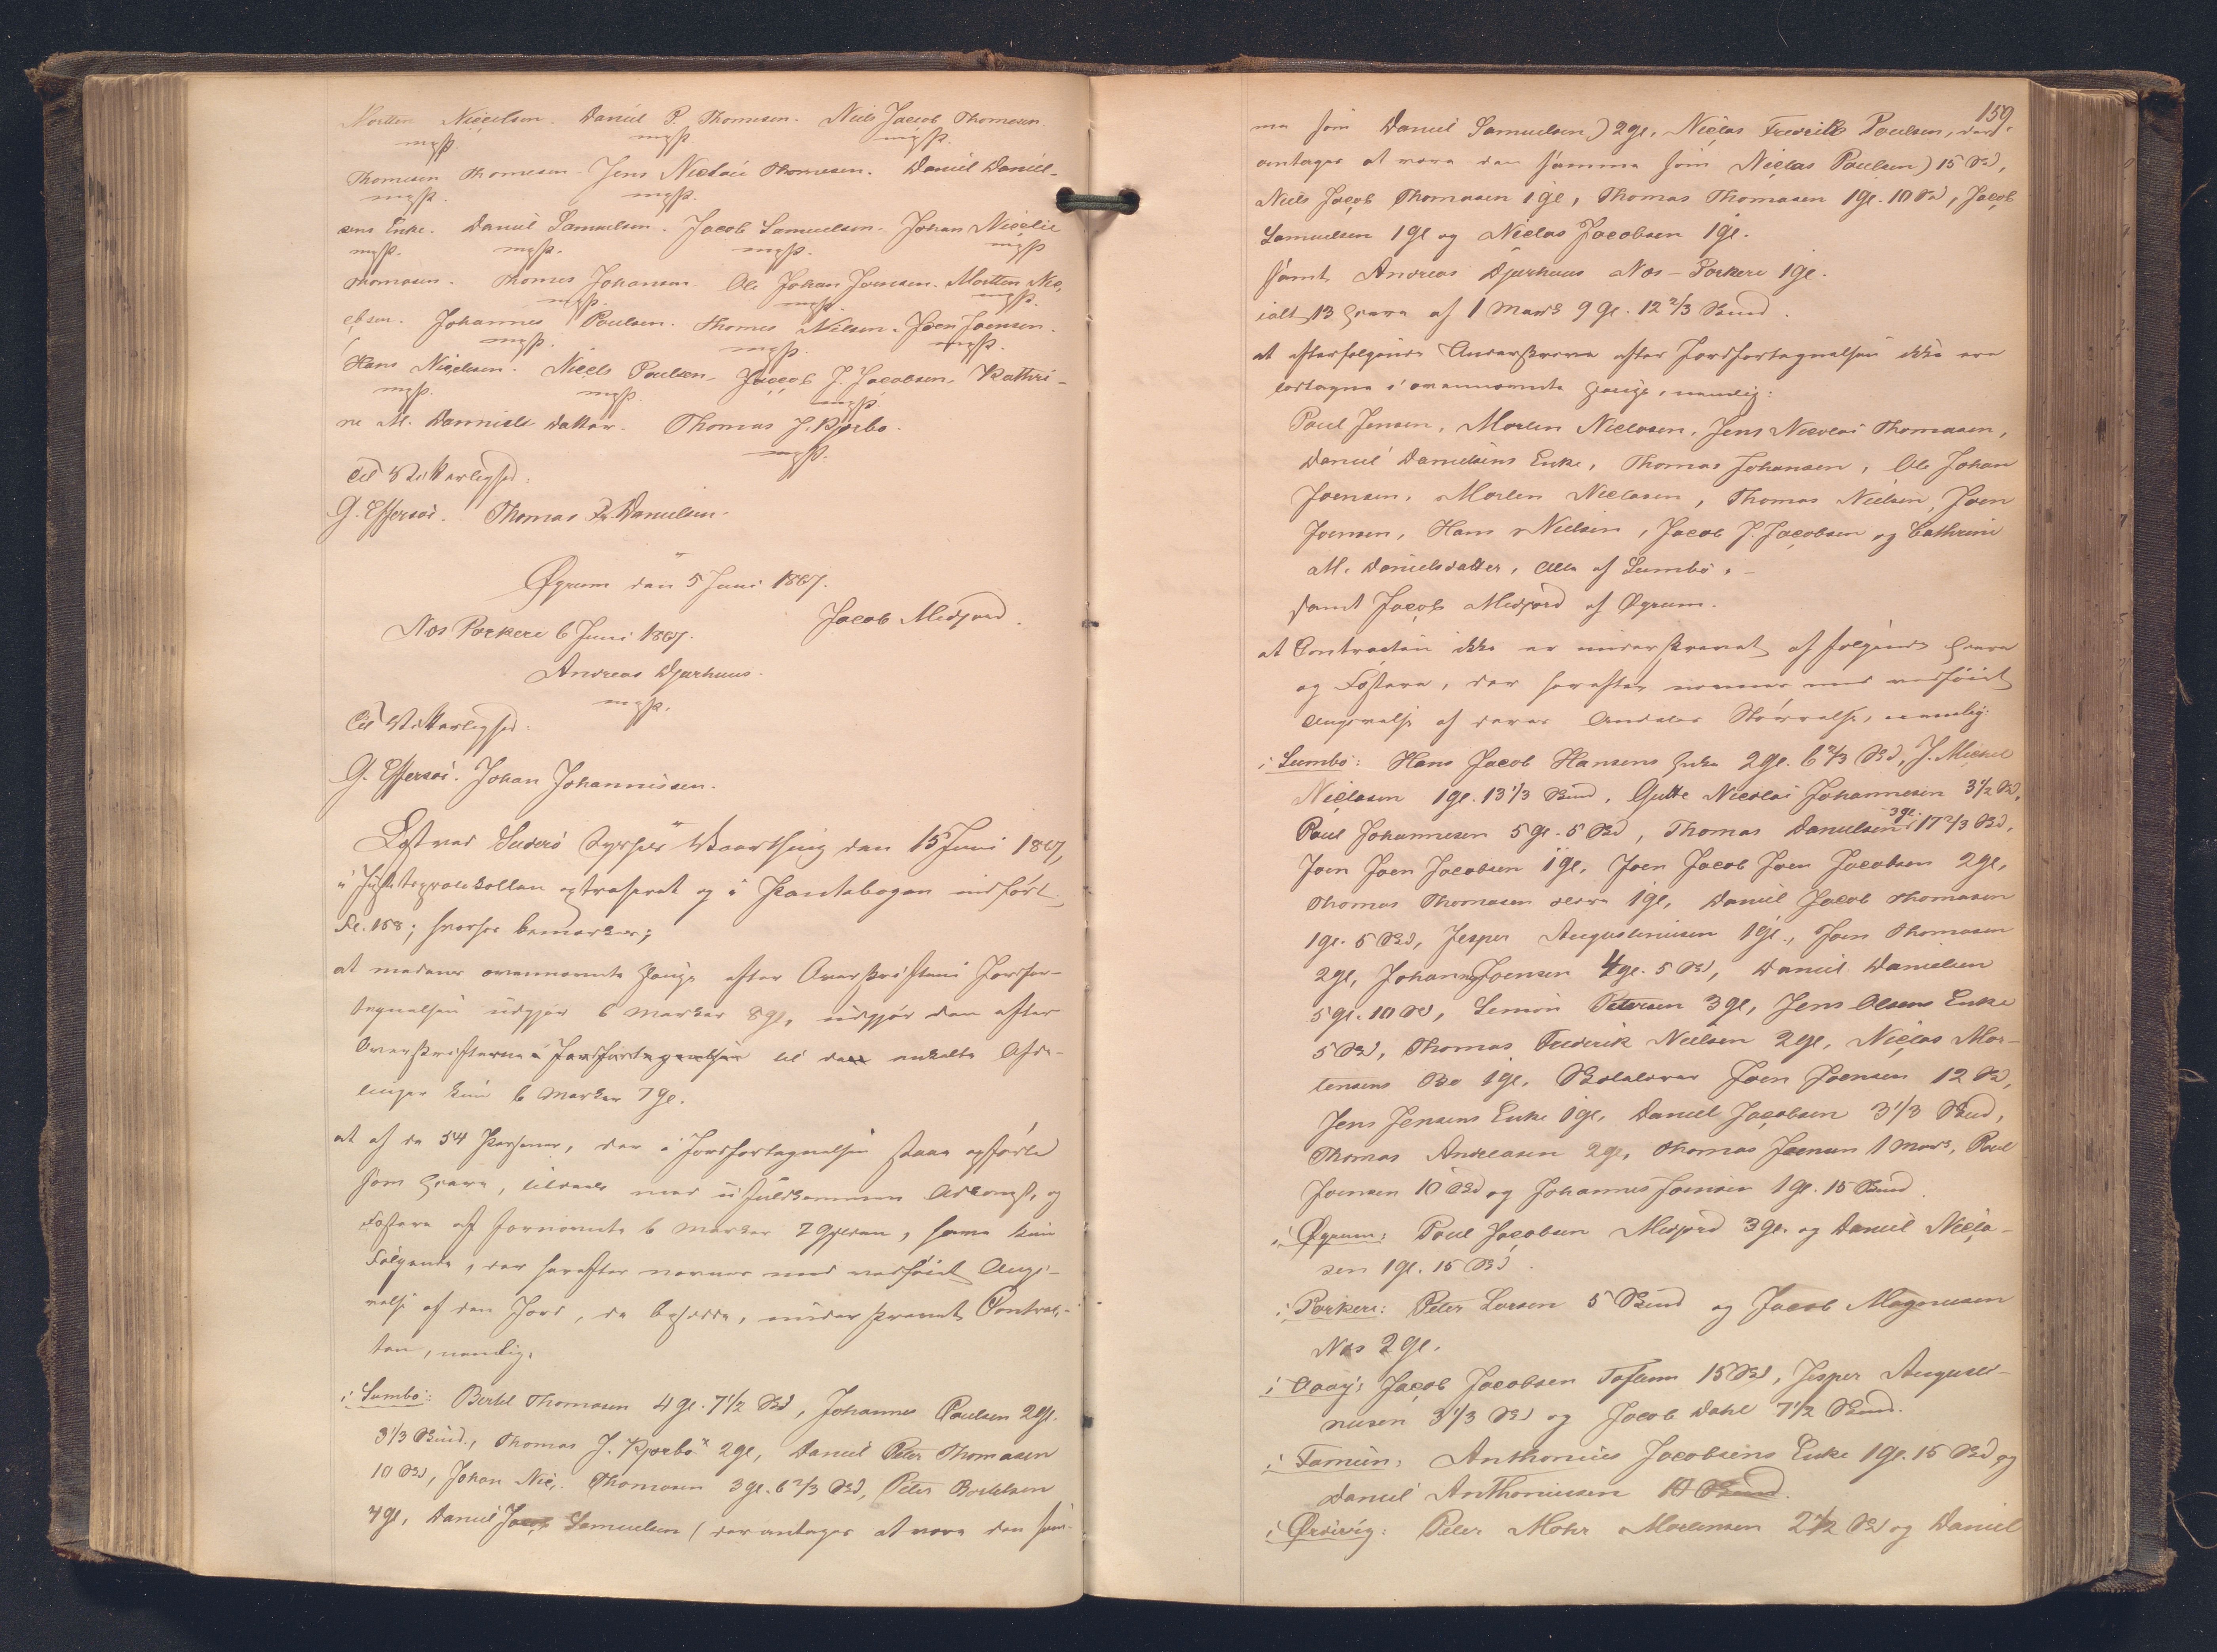 Morten Niclsen. Daniel P. Thomesen. Niels Jacob Thomesen.
mfP. mfP. mfP.
Thomesen Thomesen. Jens Nicolai Thomesen. Daniel Daniel-
mfP. mfP.
sens Enke. Daniel Samuelsen. Jacob Samuelsen. Johan Nicolie
mfP. mfP. mfP. mfP
Thomasen. Thomes Johansen. Ole Johan Joensen. Mortten Nic,
mfP. mfP. mfP.
elsen. Johannes Poulsen. Thomes Nilsen. Joen Joensen.
mfP. mfP. mfP.
Hans Niclsen. Niels Poulsen. Jacob J. Jacobsen. Kathri-
mfP. mfP. mfP
ne M. Danniels datter. Thomas J. Kjerbo.
mfP.
Til Vitterlighed:
G. Effersöe. Thomas Fr. Danielsen.
Øgrum den 5 Juni 1867.
Jacob Midjord.
Nøs Porkere 6 Juni 1867.
Andreas Djurhuus.
mfP.
Til Vitterlighed:
G. Effersöe. Johan Johannissen.
Læst ved Suderø Syssels Vaarthing den 15 Juni 1867,
i Justitsprotokollen extraheret og i Pantebogen indført
Fol. 158; hvorhos bemærkes;
at medens ovennævnte Hauge efter Overskriften i Jordfor-
tegnelsen udgjør 6 Marker 8 gl, udgjør den efter
Overskrifterne i Jordfortegnelsen til de enkelte Afde-
linger kun 6 Marker 7 gl.
at af de 54 Personer, der i Jordfortegnelsen staae opførte
som Eiere, tildeels med ufuldkommen Adkomst, og
Fæstere af fornævnte 6 Marker 7 Gylden, have kun
Følgende, der herefter nævnes med vedføiet Angi-
velse af den Jord, de besidde, underskrevet Contrac-
ten, nemlig:
i Sumbø: Bertel Thomasen 4 gl. 7 1/2 Skd, Johannes Poulsen 2 gl.
3 1/3 Skind., Thomas J. Kjerbo 2 gl, Daniel Peter Thomasen
10 Skd, Johan Nic. Thomasen 3 gl. 6 2/3 Skd, Peter Bertelsen
4 gl, Daniel Jacob Samuelsen (der antages at være den sam-
159.
me som Daniel Samuelsen) 2 gl, Niclas Frederik Poulsen, der
antages at være den samme som Niclas Poulsen) 15 Skd,
Niels Jacob Thomasen 1 gl, Thomas Thomasen 1 gl. 10 Skd, Jacob
Samuelsen 1 gl og Niclas Jacobsen 1 gl.
samt Andreas Djurhuus Nøs-Porkere 1 gl.
ialt 13 Eiere af 1 Mark 9 gl. 12 2/3 Skind.
at efterfølgende Underskrivere efter Jordfortegnelsen ikke ere
lodtagne i ovennævnte Hauge, nemlig:
Poul Jensen, Morten Niclasen, Jens Nicolai Thomasen,
Daniel Danielsens Enke, Thomas Johansen, Ole Johan
Joensen, Morten Niclasen, Thomas Nielsen, Joen
Joensen, Hans Nielsen, Jacob J. Jacobsen og Cathrine
M. Danielsdatter, Alle af Sumbø, -
samt Jacob Midjord af Øgrum.
at Contracten ikke er underskrevet af følgende Eiere
og Fæstere, der herefter nævnes med vedføiet
Angivelse af deres Andeles Størrelse, nemlig:
i Sumbø: Hans Jacob Hansens Enke 2 gl. 6 2/3 Skd, J. Michel
Niclasen 1 gl. 13 1/3 Skind, Gutte Nicolai Johannesen 3 1/2 Skd,
Poul Johannesen 5 gl. 5 Skd, Thomas Danielsen 3 gl. 17 2/3 Skd,
Joen Joen Jacobsen 1 gl, Joen Jacob Joen Jacobsen 2 gl,
Thomas Thomasen 1 gl, Daniel Jacob Thomasen
1 gl. 5 Skd, Jesper Augustinusen 1 gl., Joen Thomasen
2 gl, Johannes Joensen 4 gl. 5 Skd, Daniel Danielsen
5 gl. 10 Skd, Simon Petersen 3 gl, Jens Olsens Enke
5 Skd, Thomas Frederik Nielsen 2 gl, Niclas Mor-
tensens Bo 1 gl, Joen Joensen 12 Skd,
Jens Jensens Enke 1 gl, Daniel Jacobsen 3 1/3 Skind,
Thomas Andreasen 2 gl, Thomas Joensen 1 Mark, Poul
Joensen 10 Skd og Johannes Joensen 1 gl. 15 Skind.
i Øgrum: Poul Jacobsen Midjord 3 gl. og Daniel Nicla-
sen 1 gl. 15 Skd.
i Porkere: Peter Larsen 5 Skind og Jacob Magnusen
Nøs 2 gl.
i Vaag: Jacob Jacobsen Toftum 15 Skd, Jesper Augusti-
nusen 3 1/3 Skd og Jacob Dahl 7 1/2 Skind.
i Famiin: Anthonius Jacobsens Enke 1 gl. 15 Skd og
Daniel Anthoniusen 10 Skind.
i Ørdevig: Peter Mohr Mortensen 2 1/2 Skd og Daniel